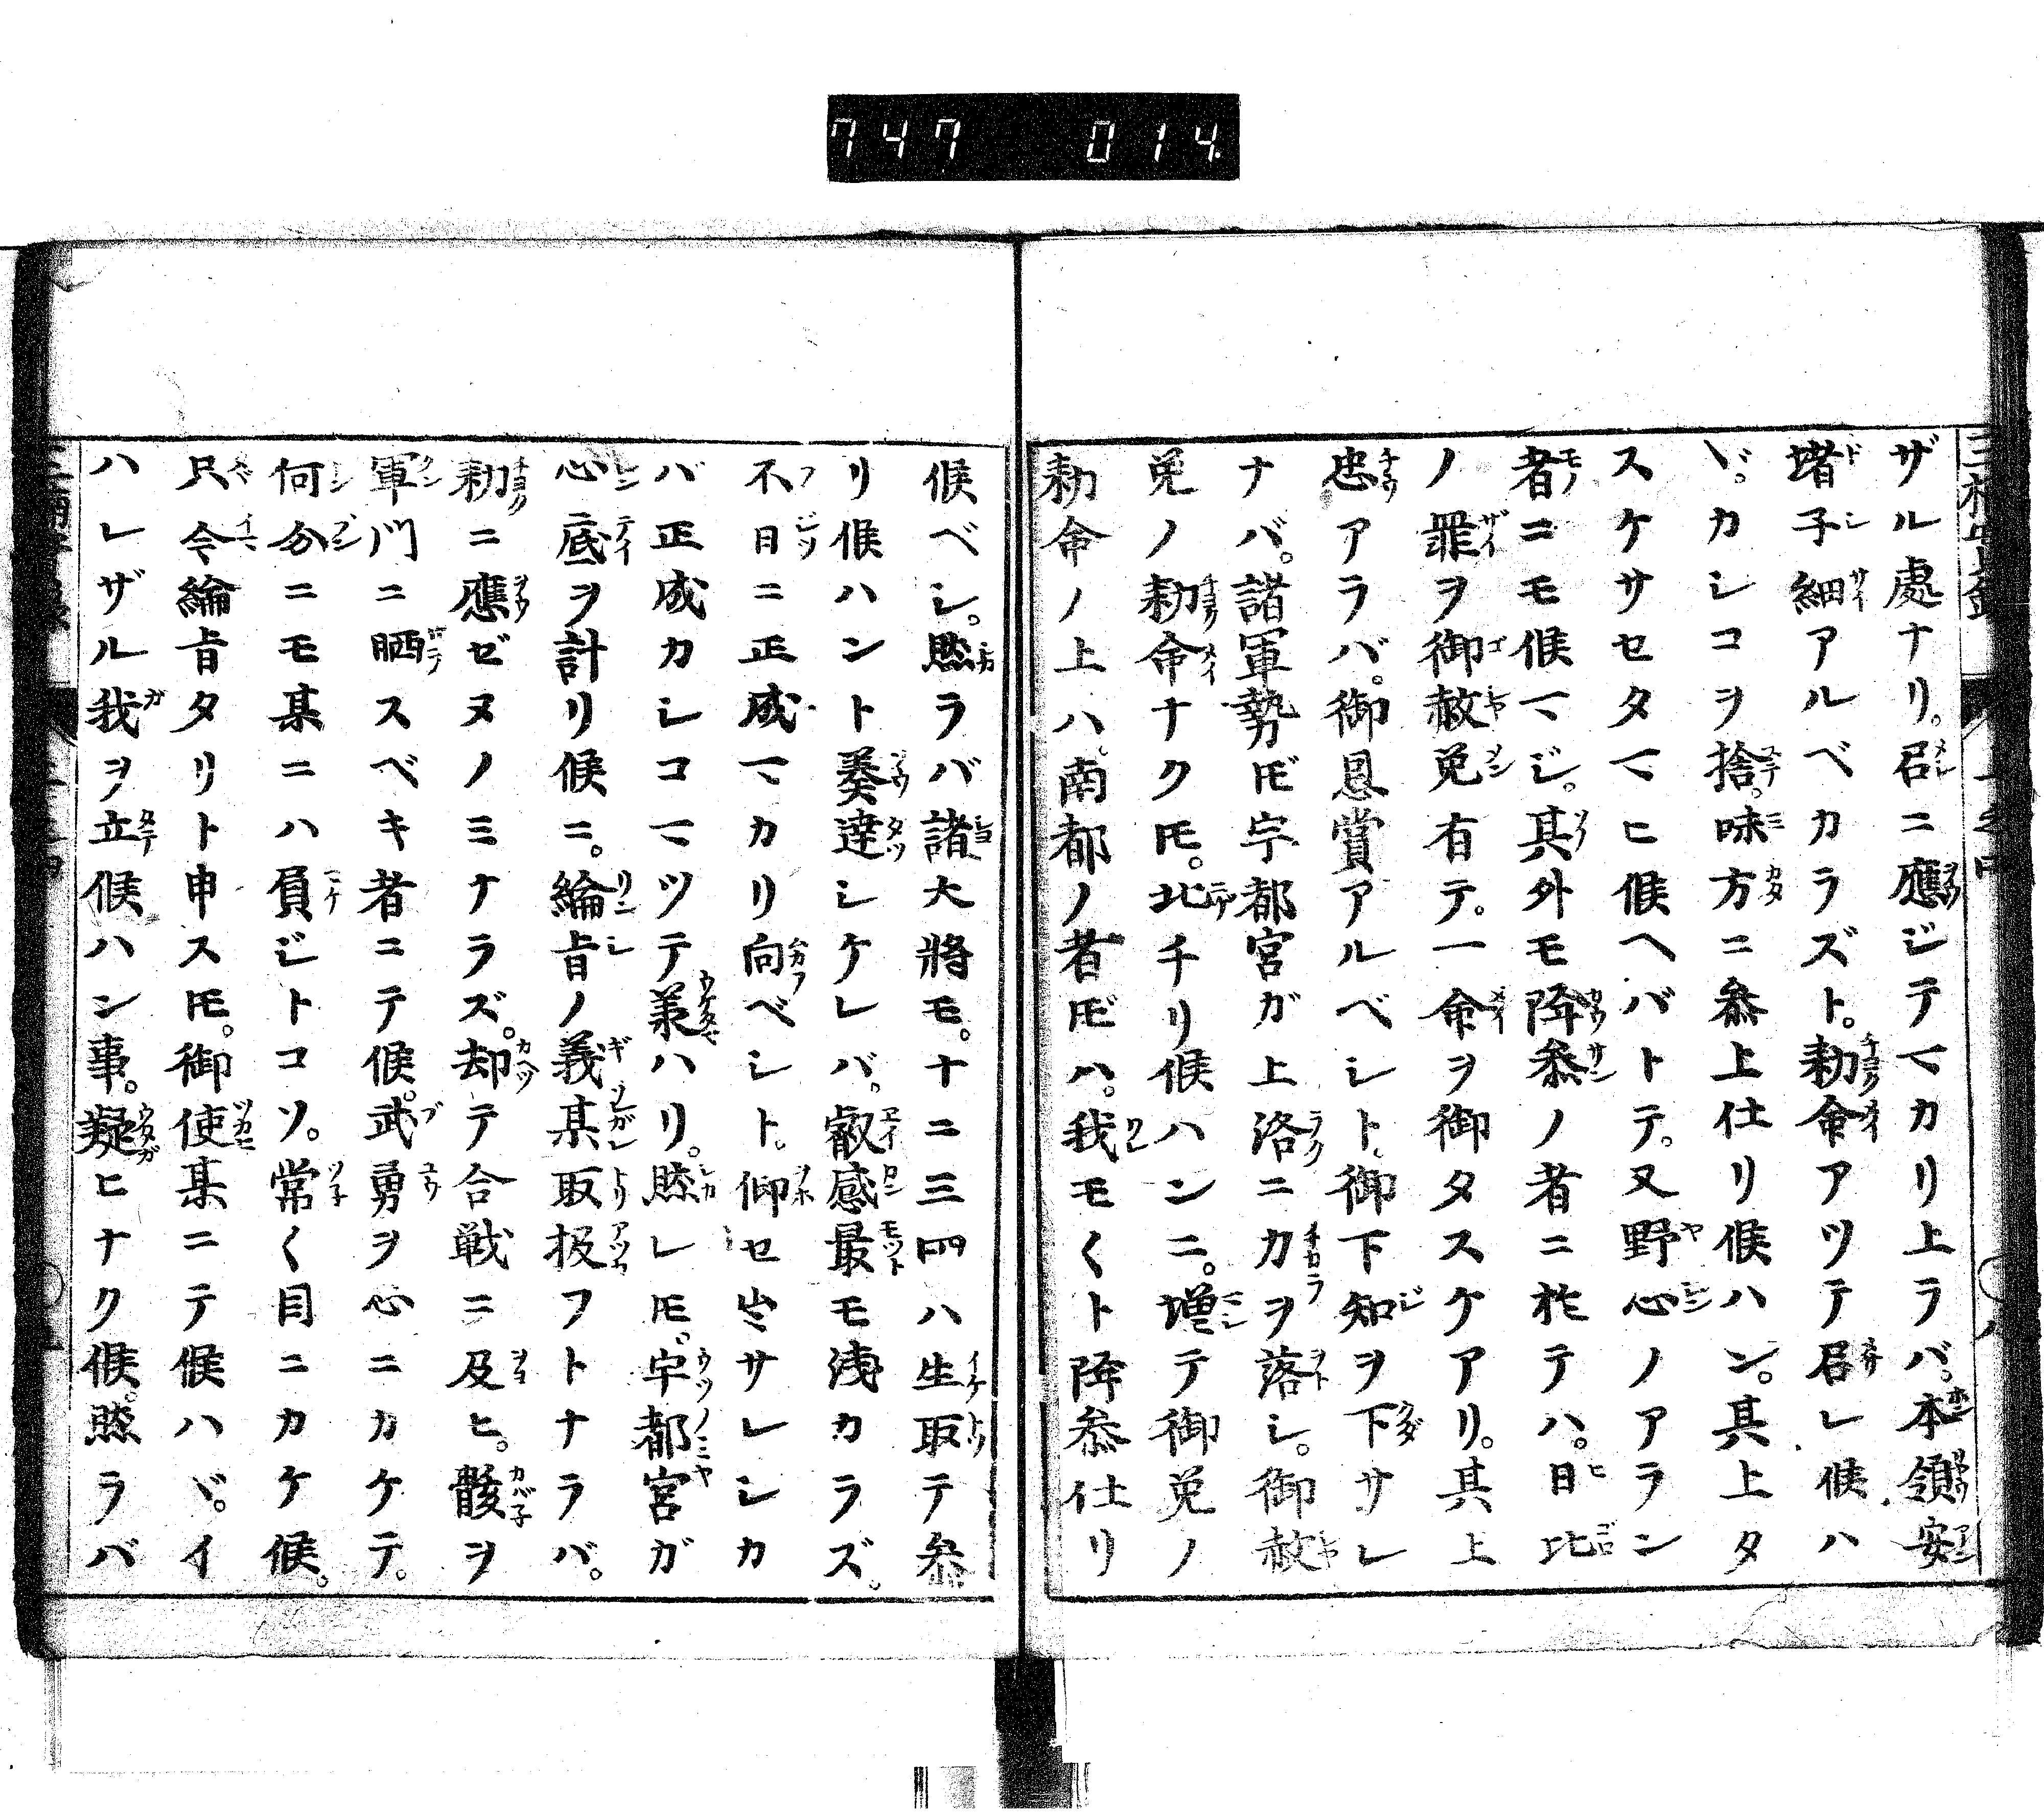 747 014
ザル處ナリ。召ニ應ジテマカリ上ラバ。本領安
堵子細アルベカラズト。勅命アツテ召レ候ハ
ヾ。カシコヲ捨。味方ニ参上仕リ候ハン。其上タ
スケサセタマヒ候ヘバトテ。又野心ノアラン
者ニモ候マジ。其外モ降参ノ者ニ於テハ。日比
ノ罪ヲ御赦免有テ。一命ヲ御タスケアリ。其上
忠アラバ。御恩賞アルベシト。御下知ヲ下サレ
ナバ。諸軍勢𪜈宇都宮ガ上洛ニ力ヲ落シ。御赦
免ノ勅命ナク𪜈。北チリ候ハンニ。増テ御免ノ
勅命ノ上ハ南都ノ者𪜈ハ。我モ〱ト降参仕リ
候ベシ。然ラバ諸大將モ。十ニ三四ハ生取テ参
リ候ハント奏達シケレバ。叡感最モ浅カラズ。
不日ニ正成マカリ向ベシト。仰セ出サレシカ
バ正成カシコマツテ兼ハリ。然レ𪜈。宇都宮ガ
心底ヲ計リ候ニ。綸旨ノ義某取扱フトナラバ。
勅ニ應ゼヌノミナラズ。却テ合戦ニ及ヒ。骸ヲ
軍門ニ晒スベキ者ニテ候。武勇ヲ心ニカケテ。
何分ニモ某ニハ負ジトコソ。常〱目ニカケ候。
只今綸旨タリト申ス𪜈。御使某ニテ候ハヾ。イ
ハレザル我ヲ立候ハン事。疑ヒナク候。然ラバ